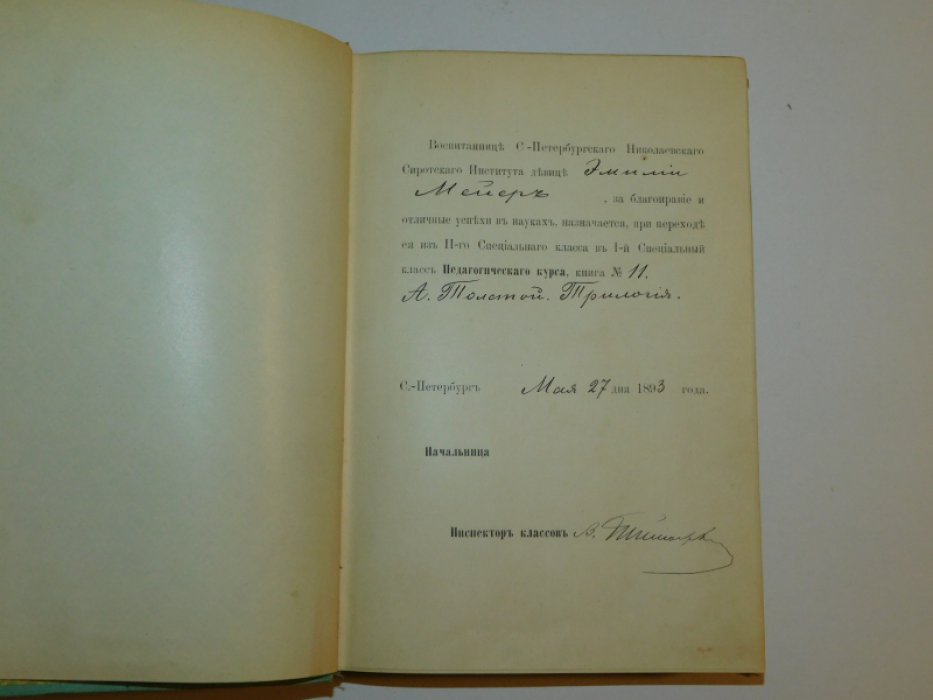 Воспитанницѣ С.-Петербургскаго Николаевскаго
Сиротскаго Института дѣвицѣ Эмиліи
Мейеръ , за благонравіе и
отличные успѣхи въ наукахъ, назначается, при переходѣ
ея изъ II-го Спеціальнаго класса въ I-й Спеціальный
классъ Педагогическаго курса, книга № 11.
А. Толстой. Трилогія.
С.-Петербургъ Мая 27 дня 1893 года.
Начальница
Инспекторъ классовъ В.